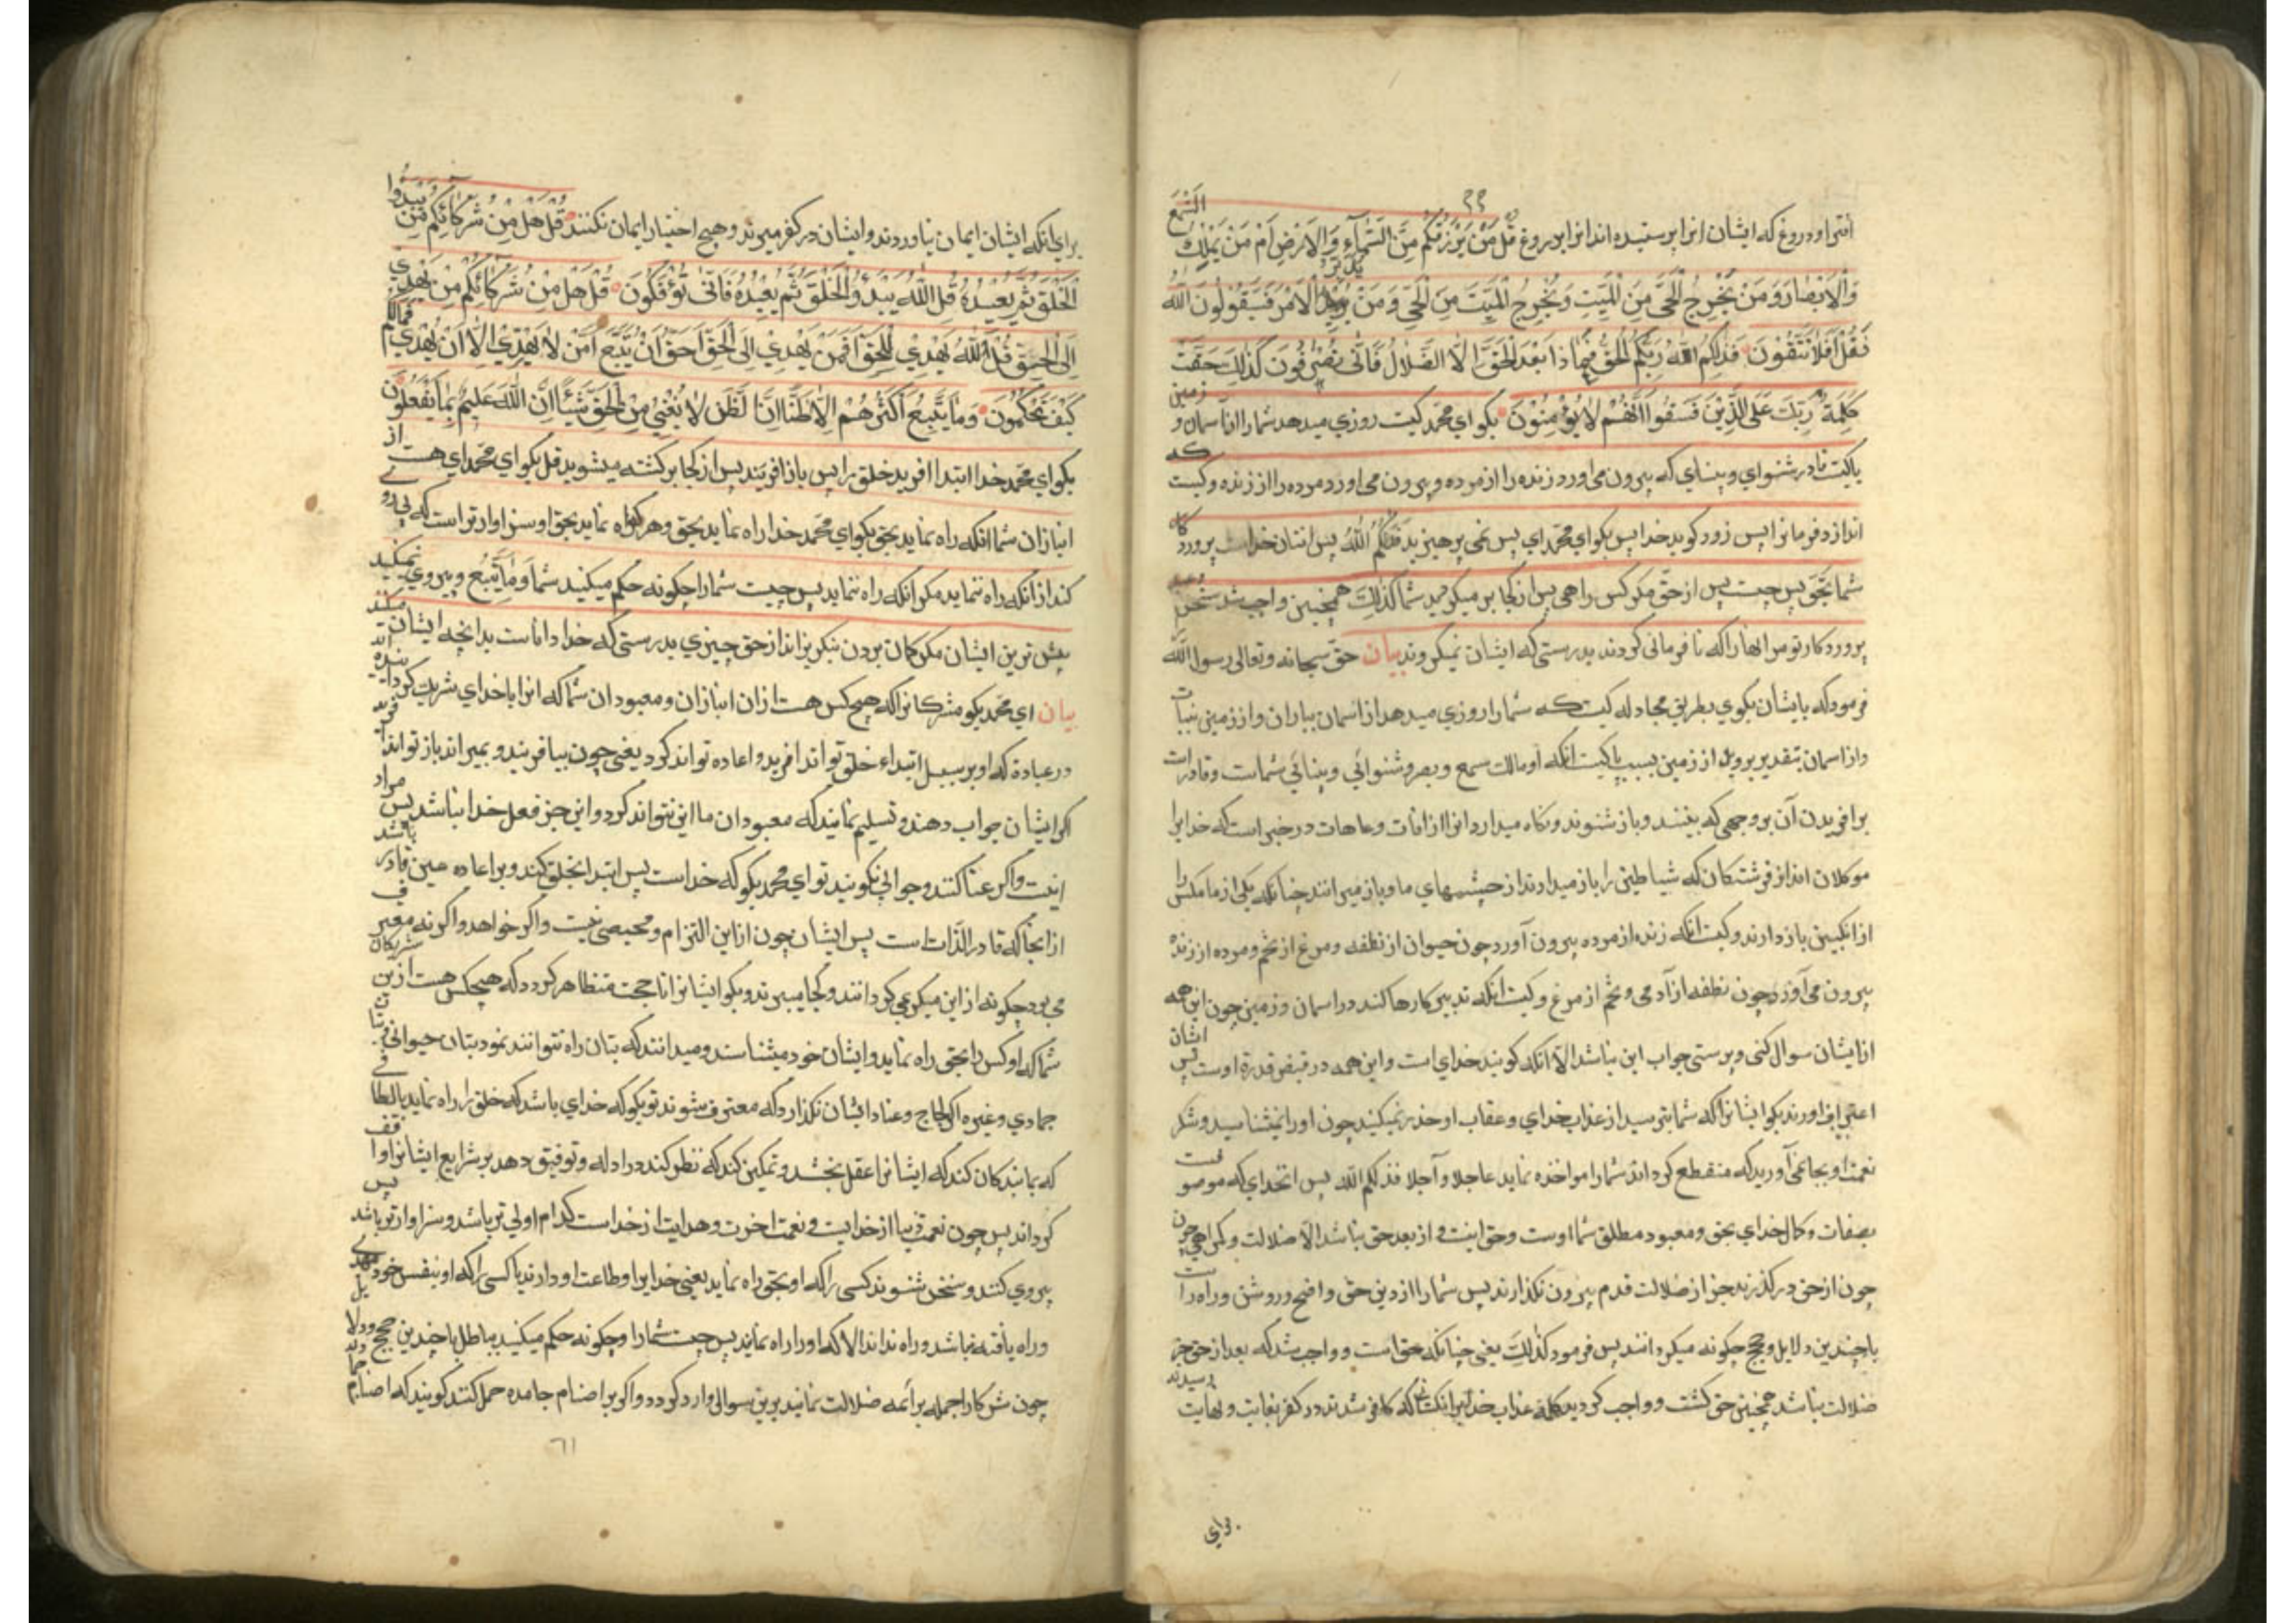 افترا و دروغ که ایشان انرا پرستیده اند انرا بدروغ قُلْ مَنْ يَرْزُقُكُمْ مِنَ السَّمَآءِ وَالْاَرْضِ اَمْ مَنْ يَمْلِكُ السَّمْعَ
وَالْاَبْصَارَ وَمَنْ يُخْرِجُ الْحَيَّ مِنَ الْمَيِّتِ وَيُخْرِجُ الْمَيِّتَ مِنَ الْحَيِّ وَمَنْ يُدَبِّرُ الْاَمْرَ فَسَيَقُولُونَ اللّٰهُ
فَقُلْ اَفَلَا تَتَّقُوْنَ فَذٰلِكُمُ اللّٰهُ رَبُّكُمُ الْحَقُّ فَمَاذَا بَعْدَ الْحَقِّ اِلَّا الضَّلَالُ فَاَنّٰى تُصْرَفُونَ كَذٰلِكَ حَقَّتْ
كَلِمَةُ رَبِّكَ عَلَى الَّذِيْنَ فَسَقُوا اَنَّهُمْ لَا يُؤْمِنُوْنَ بکو ای محمّد کیست روزی میدهد شما را از اسمان و زمین
یا کیست قادر شنوای و بینای که بیرون می اورد زنده را از مرده و بیرون می اورد مرده را از زنده و کیست که
اندازد فرمانرا پس زود کویند خدا پس بکو ای محمّد ای پس نمی پرهیزید فَذٰلِكُمُ اللّٰهُ پس انتان خداست پروردکار
شما بحقّ پس چیست پس از حقّ مکر کس راهی پس از کجا بر میکردید شما کَذٰلِكَ همچنین واجب شد سخن
پروردکار تو مر انها را که نافرمانی کردند بدرستی که ایشان نمیکروند بیان حقّ سبحانه و تعالی رسول اللّٰه
فرمود که بایشان بکوی بطریق مجادله کیست که شما را روزی میدهد از اسمان بباران و از زمین بنبات
و از اسمان بتقدیر و از زمین بسبب یا کیست انکه او مالک سمع و بصر و شنوائی و بینائی شماست و قادرست
بر افریدن آن بر وجهی که بینند و باز شنوند و نکاه میدارد انرا از افات و عاهات در خبر است که خدایرا
موکلان اند از فرشتکان که شیاطین را باز میدارند از چشمهای ما و باز میرانند چنانکه یکی از ما مکس را
از انکبین باز دارند و کیست انکه زنده از مرده بیرون آورد چون حیوان از نطفه و مرغ از تخم و مرده از زنده
بیرون می آورد چون نطفه از آدمی و تخم از مرغ و کیست انکه تدبیر کارها کند در اسمان و زمین چون این همه
از ایشان سوال کنی و پرستی جواب این نباشد الّا آنکه کویند خدای است و این همه در قبض قدرة اوست پس ایشان
اعتراف اورند بکو ایشانرا که شما بترسید از عذاب خدای و عقاب او حذر نمیکنید چون او را نمیشناسید و شکر
نعمت او بجا نمی آورید که منقطع کرداند شما را مواخذه نماید عاجلا و آجلا فذلکم اللّٰه پس انخدای که موصوفست
بصفات و کمال خدای بحق و معبود مطلق شما اوست و حق اینست و از بعد حق نباشد الّا ضلالت و کمراهی چون
چون از حق در کذرند جز از ضلالت قدم بیرون نکذارند پس شما را از دین حق واضح و روشن و راه راست
با چندین دلایل و حجج چکونه میکردانند پس فرمود کذٰلِكَ یعنی چنانکه حق است و واجب شد که بعد از حق جز
ضلالت نباشد همچنین حق کشت و واجب کردید کلمه عذاب خدای بر انکسانی که کافر شدند در کفر بغایت و نهایت رسیدند
برای
برای انکه ایشان ایمان نیاوردند و ایشان در کفر میرند و هیچ اختیار ایمان نکنند قُلْ هَلْ مِنْ شُرَكَآئِكُمْ مَنْ يَبْدَؤُا
الْخَلْقَ ثُمَّ يُعِيْدُهُ قُلِ اللّٰهُ يَبْدَؤُ الْخَلْقَ ثُمَّ يُعِيْدُهُ فَاَنّٰى تُؤْفَكُونَ قُلْ هَلْ مِنْ شُرَكَائِكُمْ مَنْ يَهْدِي
اِلَى الْحَقِّ قُلِ اللّٰهُ يَهْدِي لِلْحَقِّ اَفَمَنْ يَهْدِي اِلَى الْحَقِّ اَحَقُّ اَنْ يُتَّبَعَ اَمَّنْ لَا يَهِدِّي اِلَّا اَنْ يُهْدٰي فَمَالَكُمْ
كَيْفَ تَحْكُمُونَ وَمَا يَتَّبِعُ اَكْثَرُهُمْ اِلَّا ظَنًّا اِنَّ الظَّنَّ لَا يُغْنِي مِنَ الْحَقِّ شَيْئًا اِنَّ اللّٰهَ عَلِيمٌ بِمَا يَفْعَلُوْنَ
بکو ای محمّد خدا ابتدا افرید خلق را پس باز افریند پس از کجا برکشته میشوید قل بکو ای محمّد ای هست از
انبازان شما انکه راه نماید بحق بکو ای محمّد خدا راه نماید بحق و هر که راه نماید بحق او سزاوارتر است که پی روی
کند از آنکه راه ننماید مکر انکه راه ننماید پس چیست شما را چکونه حکم میکنید شما وَمَا يَتَّبِعُ و پیروی نمیکنند
بیش ترین ایشان مکر کمان بردن نیز از حق چیزی بدرستی که خدا داناست بدانچه ایشان میکنند
بیان ای محمّد بکو مشرکانرا که هیچ کس هست از ان انبازان و معبودان شما که انرا با خدای شریک کرده اند
در عبادة که او بر سبیل ابتداء خلق تواند افرید و اعاده تواند کرد یعنی چون بیافریند و بمیراند باز تواند افرید
اکر ایشان جواب دهند و تسلیم نمایند که معبودان ما این نتواند کرد و این جز فعل خدا نباشد پس مراد
اینست و اکر عنا کنند و جوابی نکویند تو ای محمد بکو که خداست پس ابتدا بخلق کند و بر اعاده همین قادر باشد
از انجا که قادر الذّات است پس ایشان چون از این التزام و محیصی نیست و اکر خواهد و اکر نه معترف
می بود چکونه از این میکردانند و کجا میبرند و بکو ایشانرا تا حجت متظاهر کردد که هیچکس هست ازین شریکان
شما که او کس را بحق راه نماید و ایشان خود میشناسند و میدانند که بتان راه نتوانند نمود بتان حیوانی
جمادی و غیره اکر لجاج و عناد ایشان نکذارد که معترف شوند تو بکو که خدای باشد که خلق را راه نماید بالطافی
که بمانند کان کند که ایشانرا عقل بخشد و تمکین کند که نظر کند در ادله و توفیق دهد بر شرایع ایشانرا واقف
کرداند پس چون نعمت دنیا از خدایست و نعمت اخرت و هدایت از خداست کدام اولی تر باشد و سزاوارتر باشد پس
پیروی کنند و سخن شنوند کسی را که او بحق راه نماید یعنی خدایرا و طاعت او دارند یا کسی را که او بنفس خود مهدی
و راه یافته نباشد و راه نداند الا که او را راه نمایند پس چیست شما را و چکونه حکم میکنید بباطل با چندین حجج و دلایل
چون شرکا را جمله بر ائمه ضلالت نمایند برین سوالی وارد کردد و اکر بر اصنام جامده حمل کنند کویند که اصنام
٦١